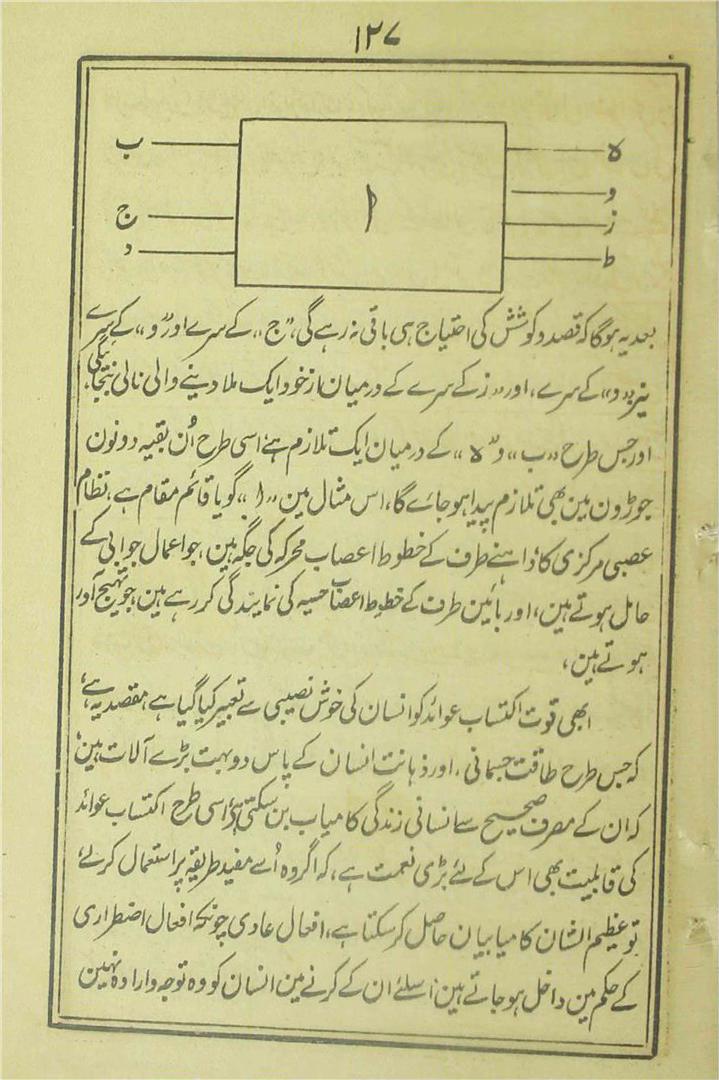 ۱۲۷
ب
ہ
ا
و
ج
ز
د
ط
بعد یہ ہوگا کہ قصد و کوشش کی احتیاج ہی باقی نہ رہے گی، "ج،، کے سرے اور "و،، کے سرے
نیز "و،، کے سرے، اور "ز کے سرے کے درمیان از خود ایک ملا دینے والی نالی
اور جس طرح "ب،، و "ہ،، کے درمیان ایک تلازم ہے اسی طرح اُن بقیہ دونون
جوڑون مین بھی تلازم پیدا ہو جائے گا، اس مثال مین "ا،، گویا قائم مقام ہے، نظام
عصبی مرکزی کا داہنے طرف کے خطوط اعصاب محرکہ کی جگہ ہین، جو اعمال جوابی کے
حامل ہوتے ہین، اور بائین طرف کے خطوط اعصاب حسیہ کی نمایندگی کر رہے ہین، جو تہیج آور
ہوتے ہین،
ابھی قوت اکتساب عوائد کو انسان کی خوش نصیبی سے تعبیر کیا گیا ہے، مقصد یہ ہے،
کہ جس طرح طاقت جسمانی، اور ذہانت انسان کے پاس دو بہت بڑے آلات ہین،
کہ ان کے مصرف صحیح سے انسانی زندگی کامیاب بن سکتی ہے، اسی طرح اکتساب عوائد
کی قابلیت بھی اس کے لئے بڑی نعمت ہے، کہ اگر وہ اُسے مفید طریقہ پر استعمال کرے،
تو عظیم الشان کامیابیان حاصل کر سکتا ہے، افعال عادی چونکہ افعال اضطراری
کے حکم مین داخل ہو جاتے ہین، اسلئے ان کے کرنے مین انسان کو وہ توجہ و ارادہ نہین